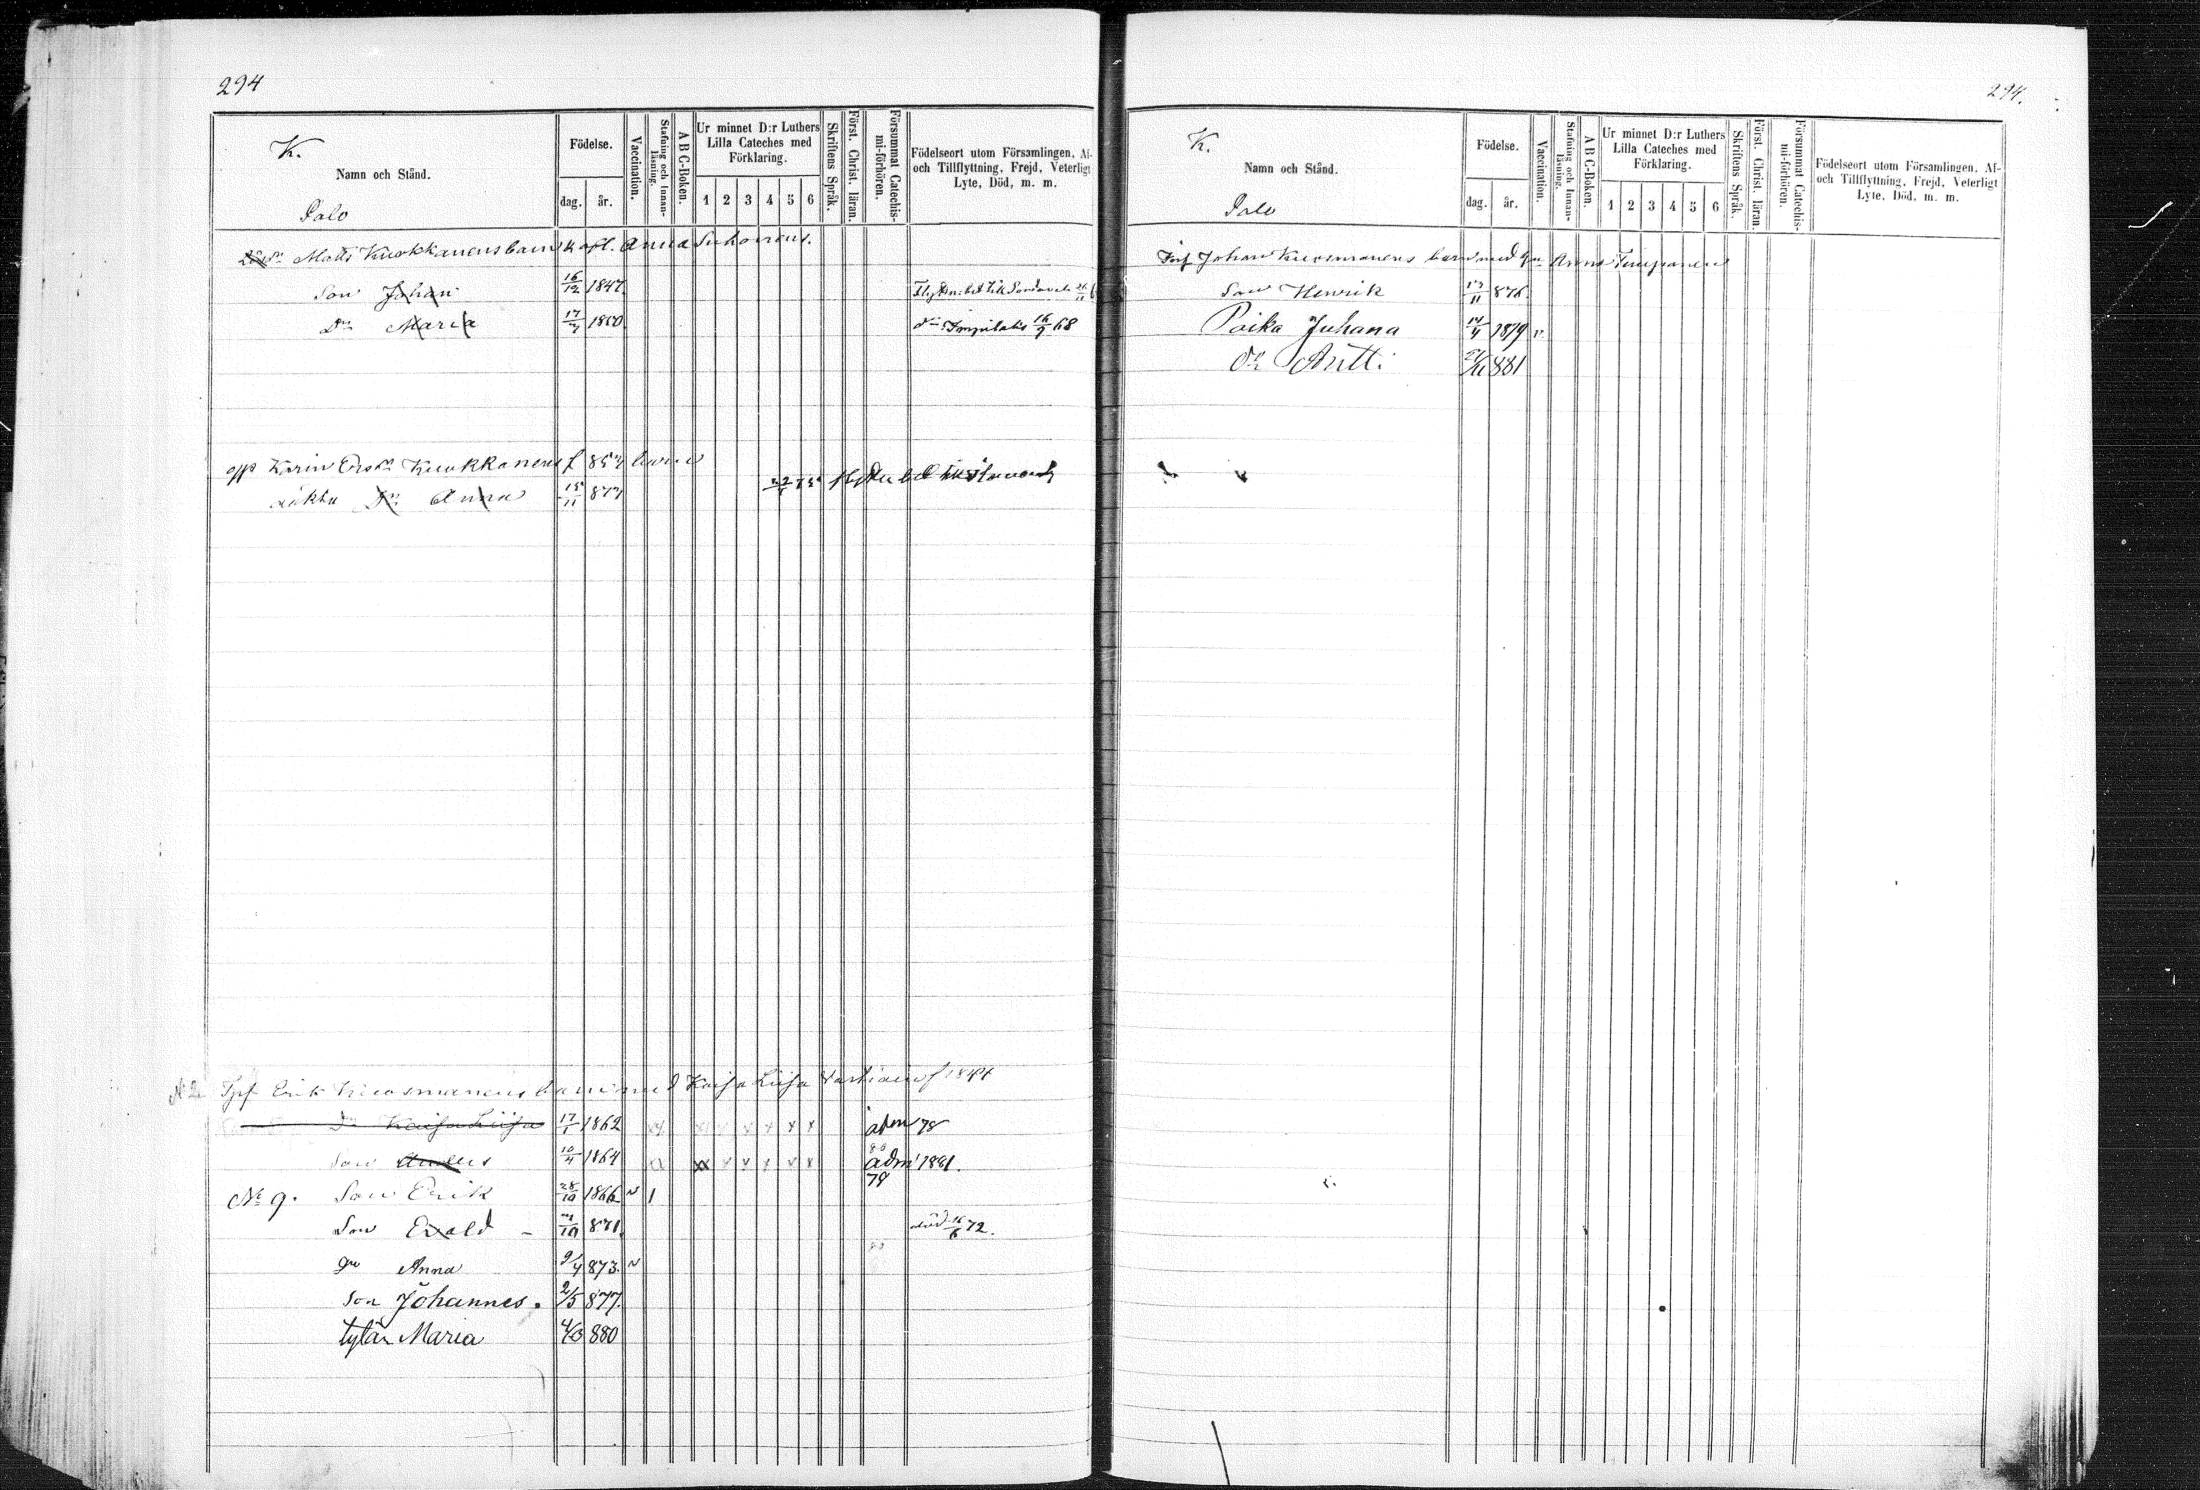 294
K.
Namn och Stånd.
Palo
Födelse.
dag. år.
Vaccination.
Stafning och Innan-läsning.
A B C-Boken.
Ur minnet D:r Luthers Lilla Cateches med Förklaring.
1 2 3 4 5 6
Skriftens Språk.
Först. Christ. läran.
Försummat Catechis-mi-förhören.
Födelseort utom Församlingen, Af-
och Tillflyttning, Frejd, Veterligt
Lyte, Död, m. m.
Matts Kuokkanens barn Anna
Son Johan 16/12 1847
Dr Maria 1850 Impilaks 16/9 68
Karin Kuokkanens f 853 barn
oäkta Dr Anna 15/11 873
No 2 Erik Kuosmanens barn med Kaisa Liisa f 1841
Dr Kaisa Liisa 17/1 1862 x x x x adm 78
Son 10/4 1864 x x x x x adm 1881.
78
No 9. Son Erik 28/10 1866 1
Son Evald 10 871. död 72.
Anna 9/4 873.
Son Johannes. 2/5 877.
tytär Maria 880
294.
K.
Namn och Stånd.
Palo
Födelse.
dag. år.
Vaccination.
Stafning och Innan-läsning.
A B C-Boken.
Ur minnet D:r Luthers Lilla Cateches med Förklaring.
1 2 3 4 5 6
Skriftens Språk.
Först. Christ. läran.
Försummat Catechis-mi-förhören.
Födelseort utom Församlingen, Af-
och Tillflyttning, Frejd, Veterligt
Lyte, Död, m. m.
Johan Kuosmanens barn med Anna
Son Henrik 876.
Poika Juhana 14/4 1879 v.
Antti 881